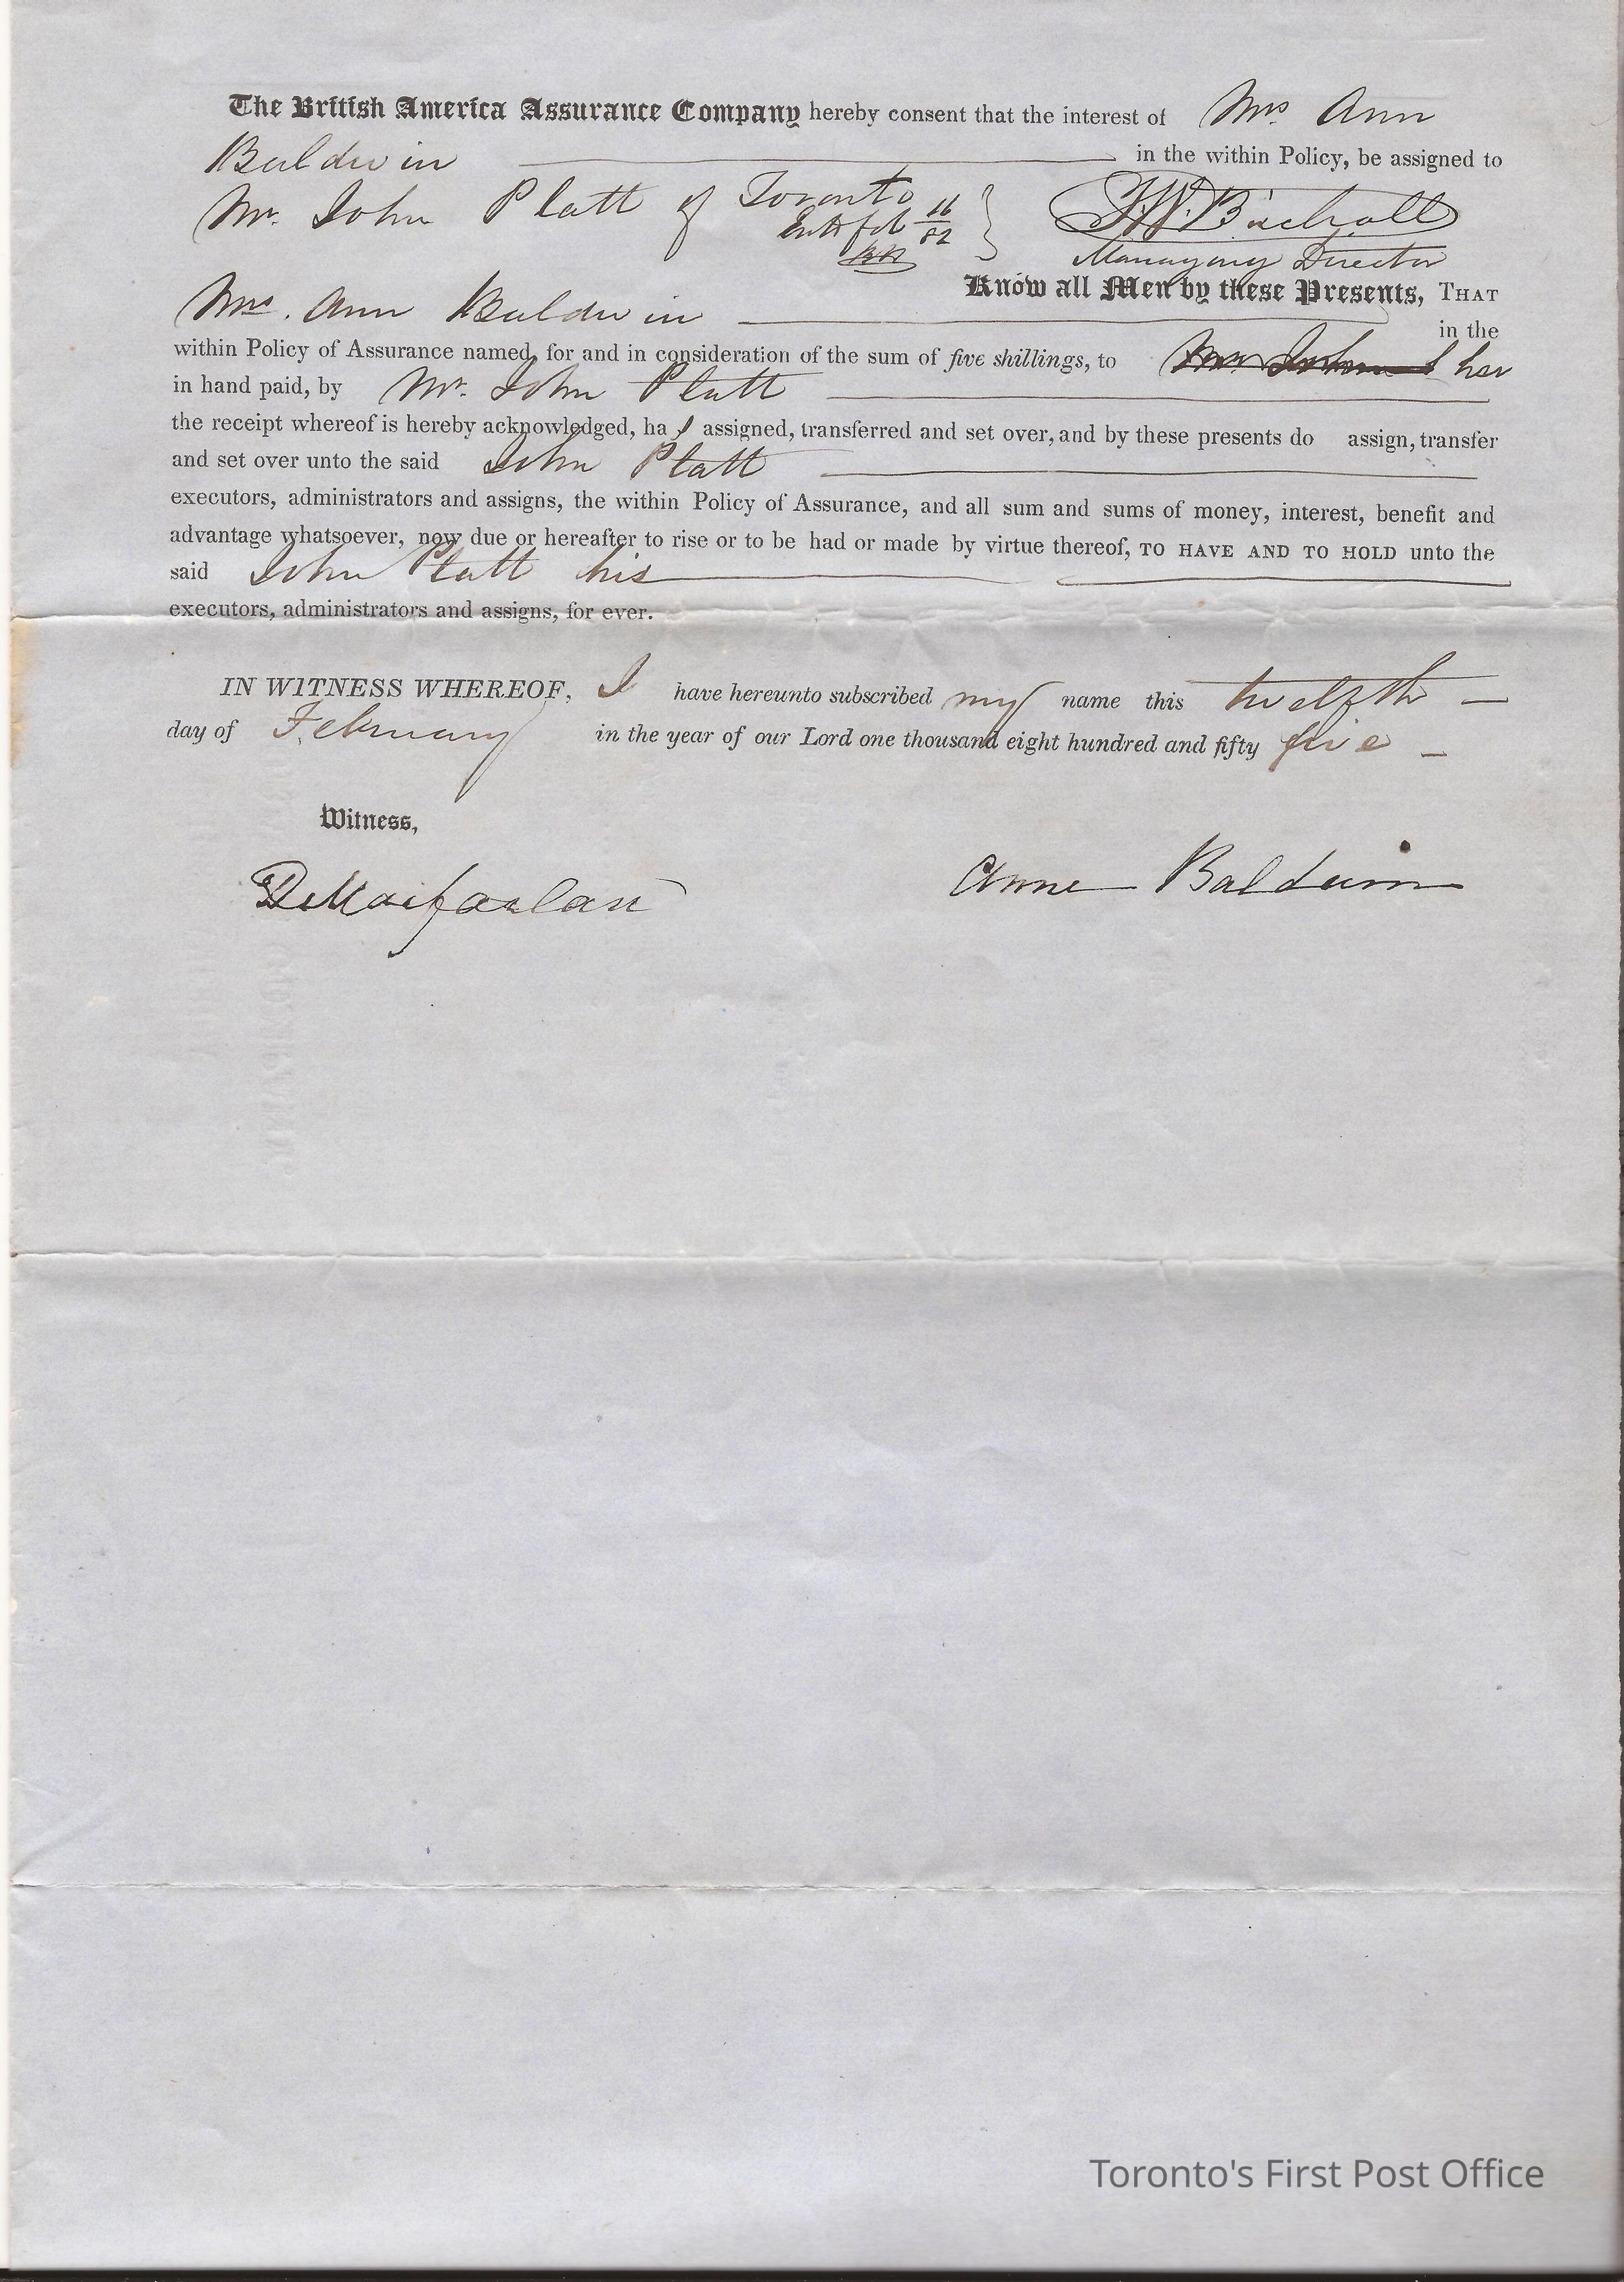 The British America Assurance Company hereby consent that the interest of Mrs. Ann
Baldwin in the within Policy, be assigned to
Mr. John Platt of Toronto
Managing Director
Know all Men by these Presents, THAT
Mrs. Ann Baldwin in the
within Policy of Assurance named, for and in consideration of the sum of five shillings, to her
in hand paid, by Mr. John Platt
the receipt whereof is hereby acknowledged, ha assigned, transferred and set over, and by these presents do assign, transfer
and set over unto the said John Platt
executors, administrators and assigns, the within Policy of Assurance, and all sum and sums of money, interest, benefit and
advantage whatsoever, now due or hereafter to rise or to be had or made by virtue thereof, TO HAVE AND TO HOLD unto the
said John Platt his
executors, administrators and assigns, for ever.
IN WITNESS WHEREOF, I have hereunto subscribed my name this twelfth
day of February in the year of our Lord one thousand eight hundred and fifty five
Witness,
Anne Baldwin
Toronto's First Post Office